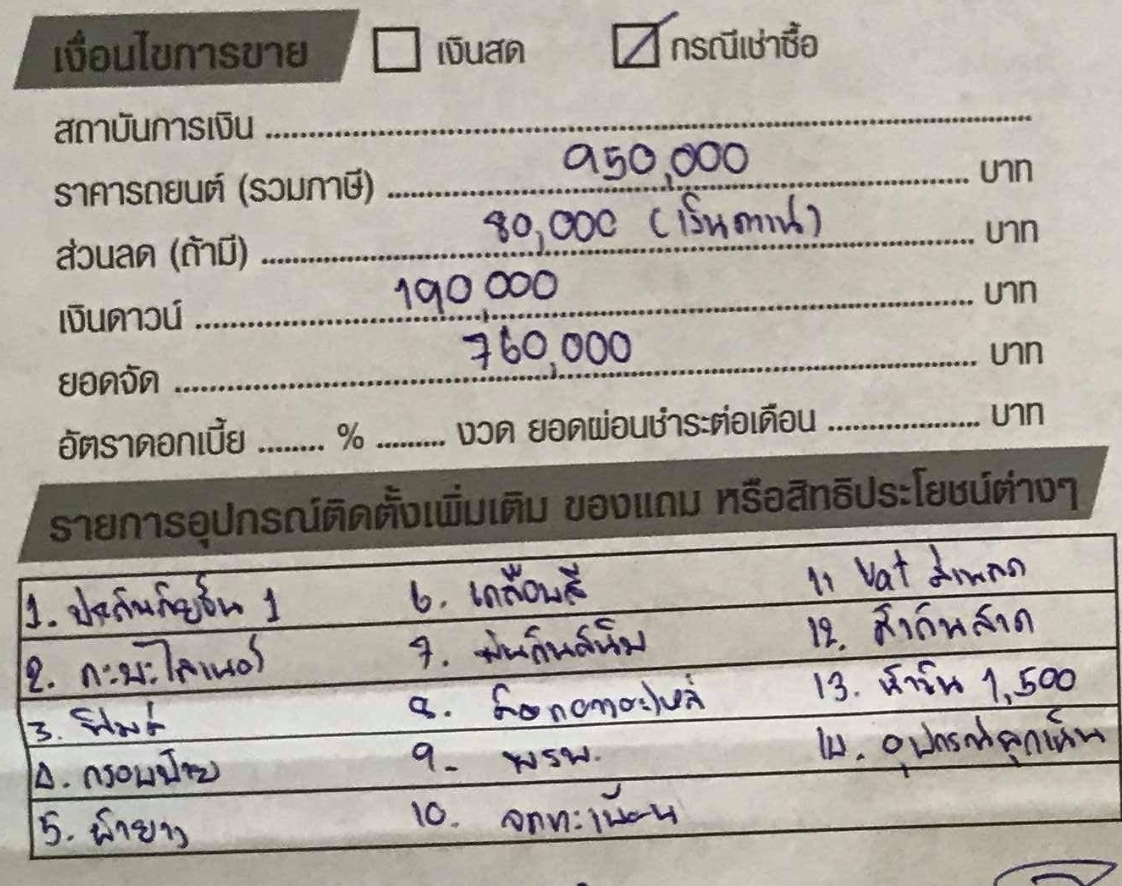 เงื่อนไขการขาย เงินสด กรณีเช่าซื้อ
สถาบันการเงิน ........................ 
ราคารถยนต์ (รวมภาษี) 950,000 บาท
ส่วนลด (ถ้ามี) 80,000 (เงินดาวน์) บาท
เงินดาวน์ 190,000 บาท
ยอดจัด 760,000 บาท
อัตราดอกเบี้ย ........ % ......... งวด ยอดผ่อนชำระต่อเดือน ................... บาท
รายการอุปกรณ์ติดตั้งเพิ่มเติม ของแถม หรือสิทธิประโยชน์ต่างๆ
1. ประกันภัยชั้น 1 6. เคลือบสี 11 Vat ส่วนลด
2. กะบะไลเนอร์ 7. พ่นกันสนิม 12. ผ้ากันสาด
3. ฟิล์ม 8. ล็อกอะไหล่ 13. น้ำมัน 1,500
4. กรอบป้าย 9. พรบ. 14. อุปกรณ์ฉุกเฉิน
5. ผ้ายาง 10. จดทะเบียน